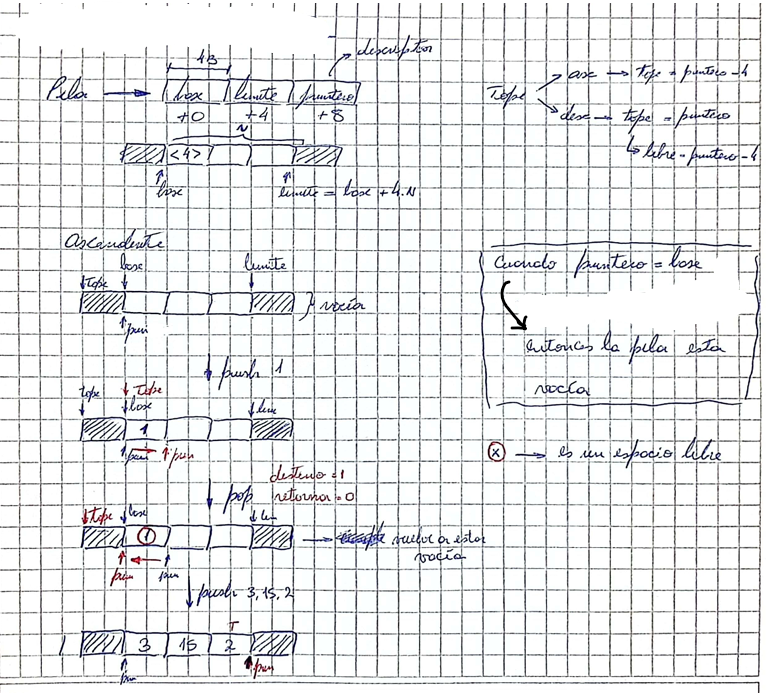 4B
descriptor
Pila → base límite puntero
+0 +4 +8
N
<4>
base
límite = base + 4·N
Tope
asc → tope = puntero - 4
desc → tope = puntero
↳ libre = puntero - 4
Ascendente
base límite
tope
} vacía
pun
push 1
Tope
tope base lim
1
pun pun
destino = 1
pop retorna = 0
tope base lim
1
→ vuelve a estar
vacía
pun pun
push 3, 15, 2
T
3 15 2
pun pun
Cuando puntero = base
entonces la pila esta
vacía
x → es un espacio libre